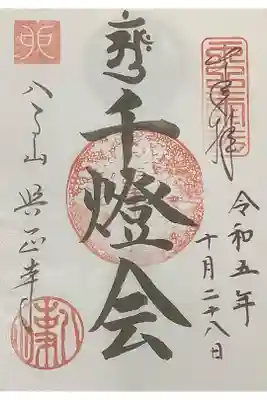 奉拝
令和五年
十月二十八日
千燈会
八事山 興正寺